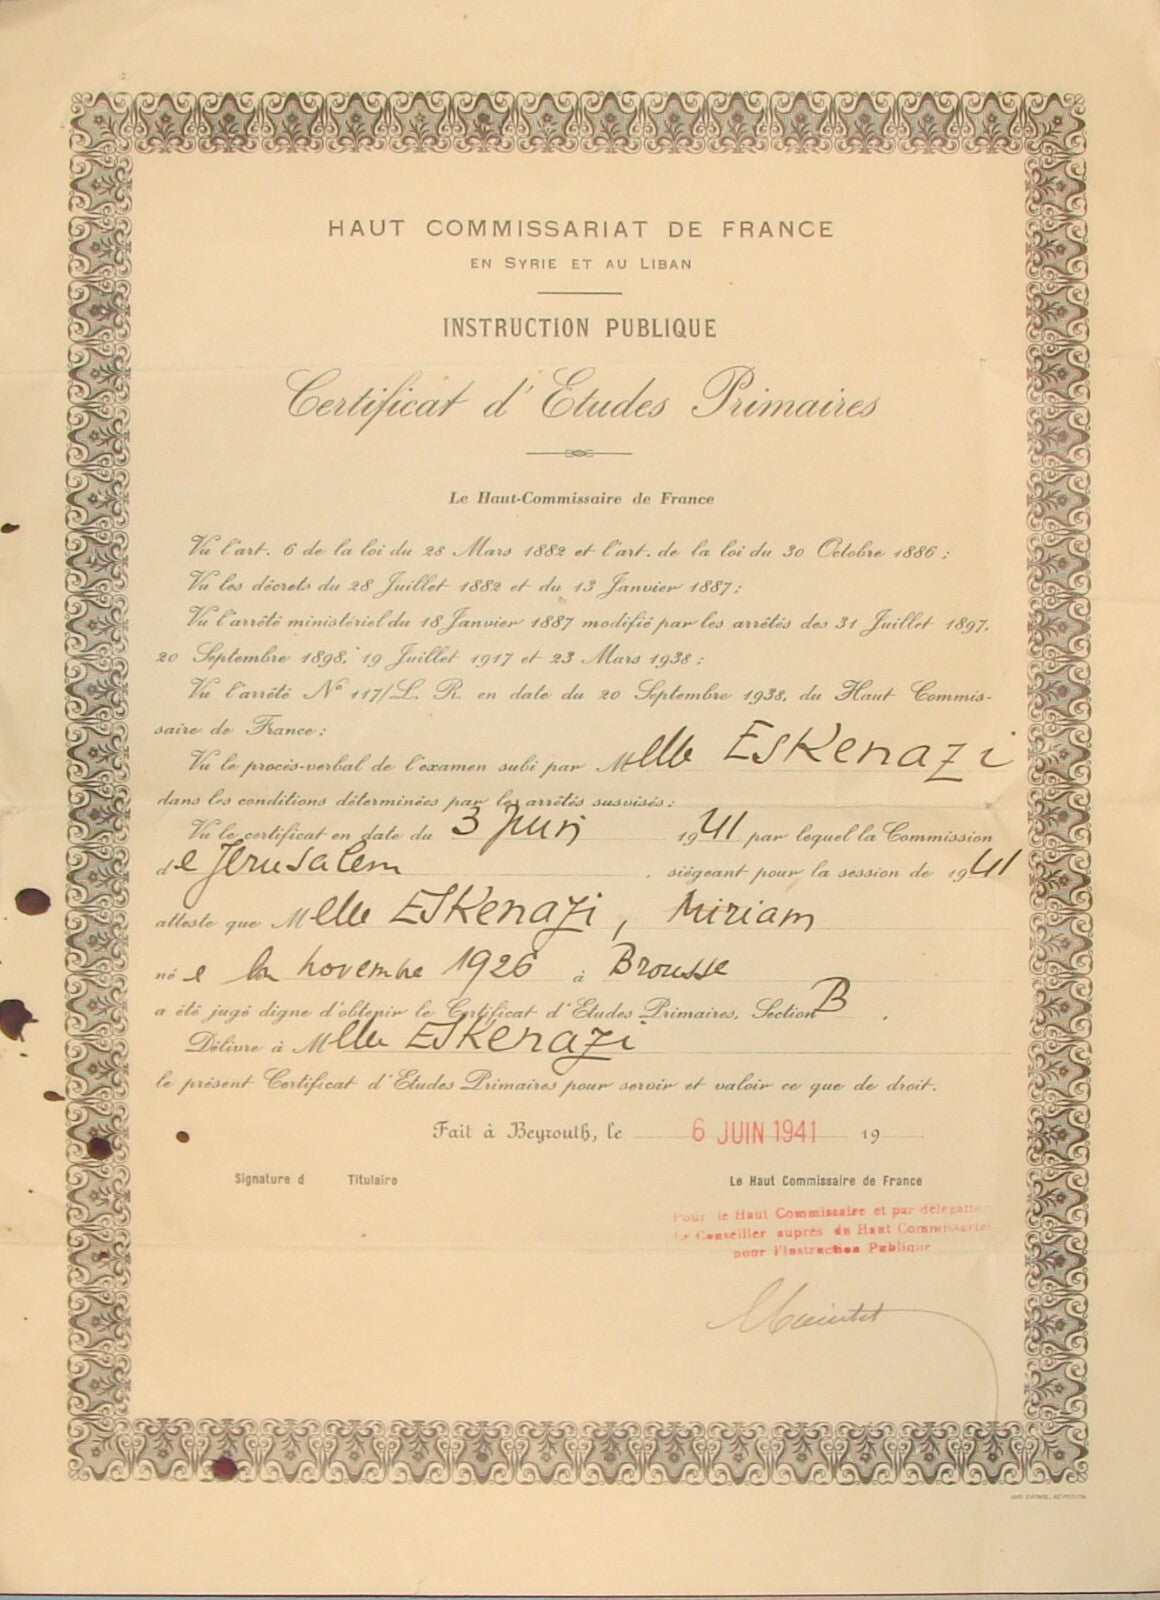 HAUT COMMISSARIAT DE FRANCE
EN SYRIE ET AU LIBAN
INSTRUCTION PUBLIQUE
Certificat d'Etudes Primaires
Le Haut-Commissaire de France
Vu l'art. 6 de la loi du 28 Mars 1882 et l'art. de la loi du 30 Octobre 1886 ;
Vu les décrets du 28 Juillet 1882 et du 13 Janvier 1887 ;
Vu l'arrêté ministériel du 18 Janvier 1887 modifié par les arrêtés des 31 Juillet 1897,
20 Septembre 1898, 19 Juillet 1917 et 23 Mars 1938 ;
Vu l'arrêté No 117/L. R. en date du 20 Septembre 1938, du Haut Commis-
saire de France ;
Vu le procès-verbal de l'examen subi par Melle ESKenazi
dans les conditions déterminées par les arrêtés susvisés ;
Vu le certificat en date du 3 Juin 1941 par lequel la Commission
de Jérusalem , siégeant pour la session de 1941
atteste que Melle ESKenazi, Miriam
née novembre 1926 à Brousse
a été jugé digne d'obtenir le Certificat d'Etudes Primaires, Section B .
Délivre à Melle ESKenazi
le présent Certificat d'Etudes Primaires pour servir et valoir ce que de droit.
Fait à Beyrouth, le 6 JUIN 1941 19
Signature d Titulaire Le Haut Commissaire de France
Pour le Haut Commissaire et par délégation
Le Conseiller auprès du Haut Commissariat
pour l'Instruction Publique